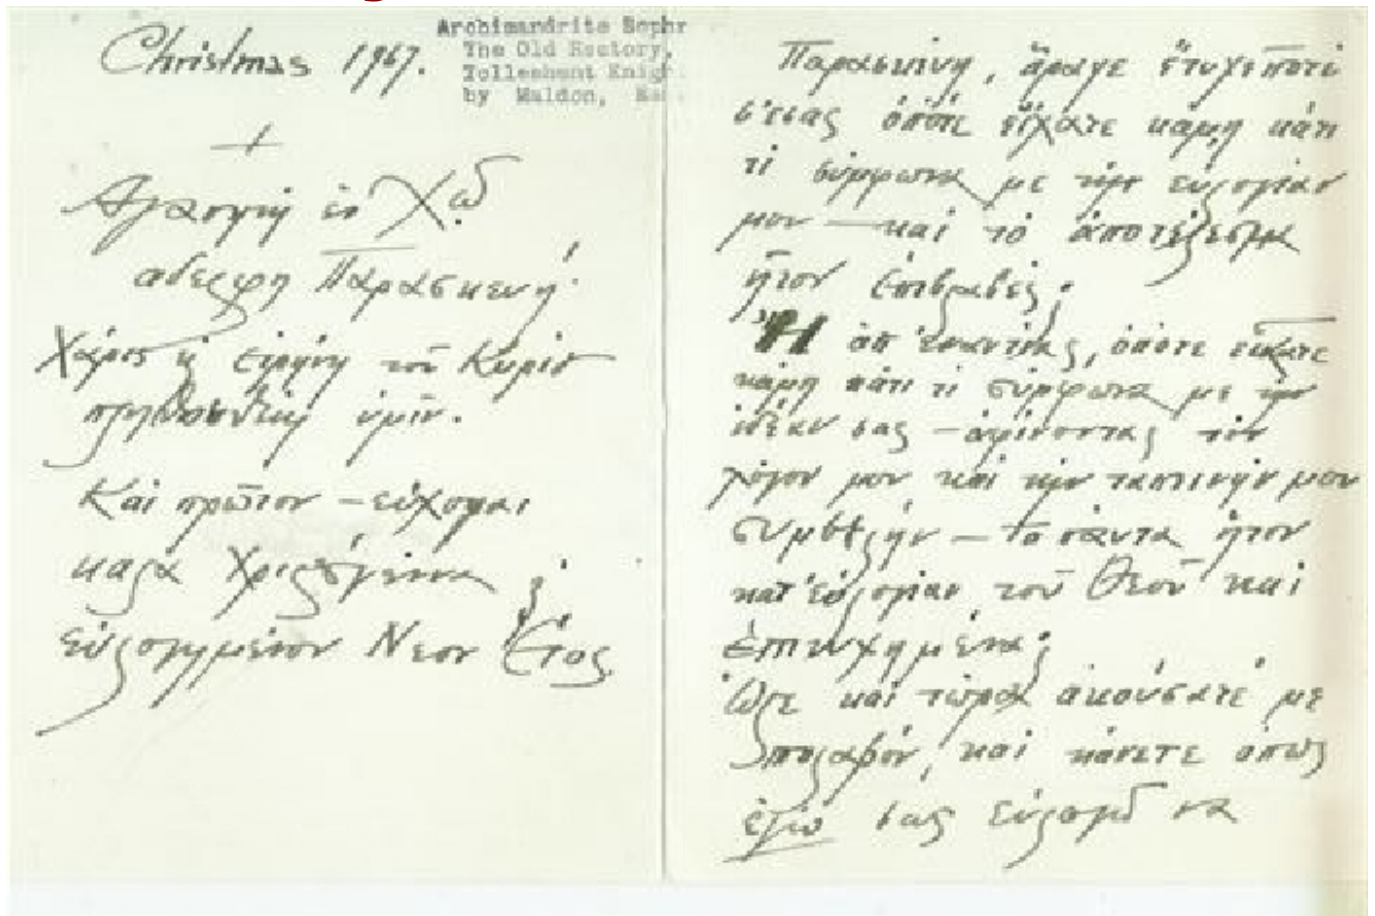 Christmas 1967.
Archimandrite Sophr
The Old Rectory,
Tolleshunt Knigh
by Maldon,
+
Ἀγαπητή ἐν Χῷ
αδελφη Παρασκευή·
Χάρις κ εἰρήνη τοῦ Κυρίου
πληθυνθείη ὑμῖν.
Και πρῶτον – εὔχομαι
καλά Χριστούγεννα
εὐλογημένον Νεον Ἔτος
Παρασκευη, ἄραγε ἔτυχε ποτέ
σ' ἐσας ὁπότε εἴχατε κάμῃ κάτι
τί σύμφωνα με την εὐλογίαν
μου – και τό ἀποτέλεσμα
ἦτον ἐπιβλαβές;
Ἤ ἀπ' ἐναντίας, ὁπότε εἴχατε
κάμῃ κάτι τι σύμφωνα με την
ἰδέαν σας – ἀφίνοντας τόν
λόγον μου και την ταπεινήν μου
συμβολήν – τα πάντα ἦτον
κατ' εὐλογίαν τοῦ Θεοῦ και
ἐπιτυχημένα;
Ὥστε και τώρα ἀκούσατέ με
και κάνετε ὅπως
ἐγώ σας εὐλογῶ να